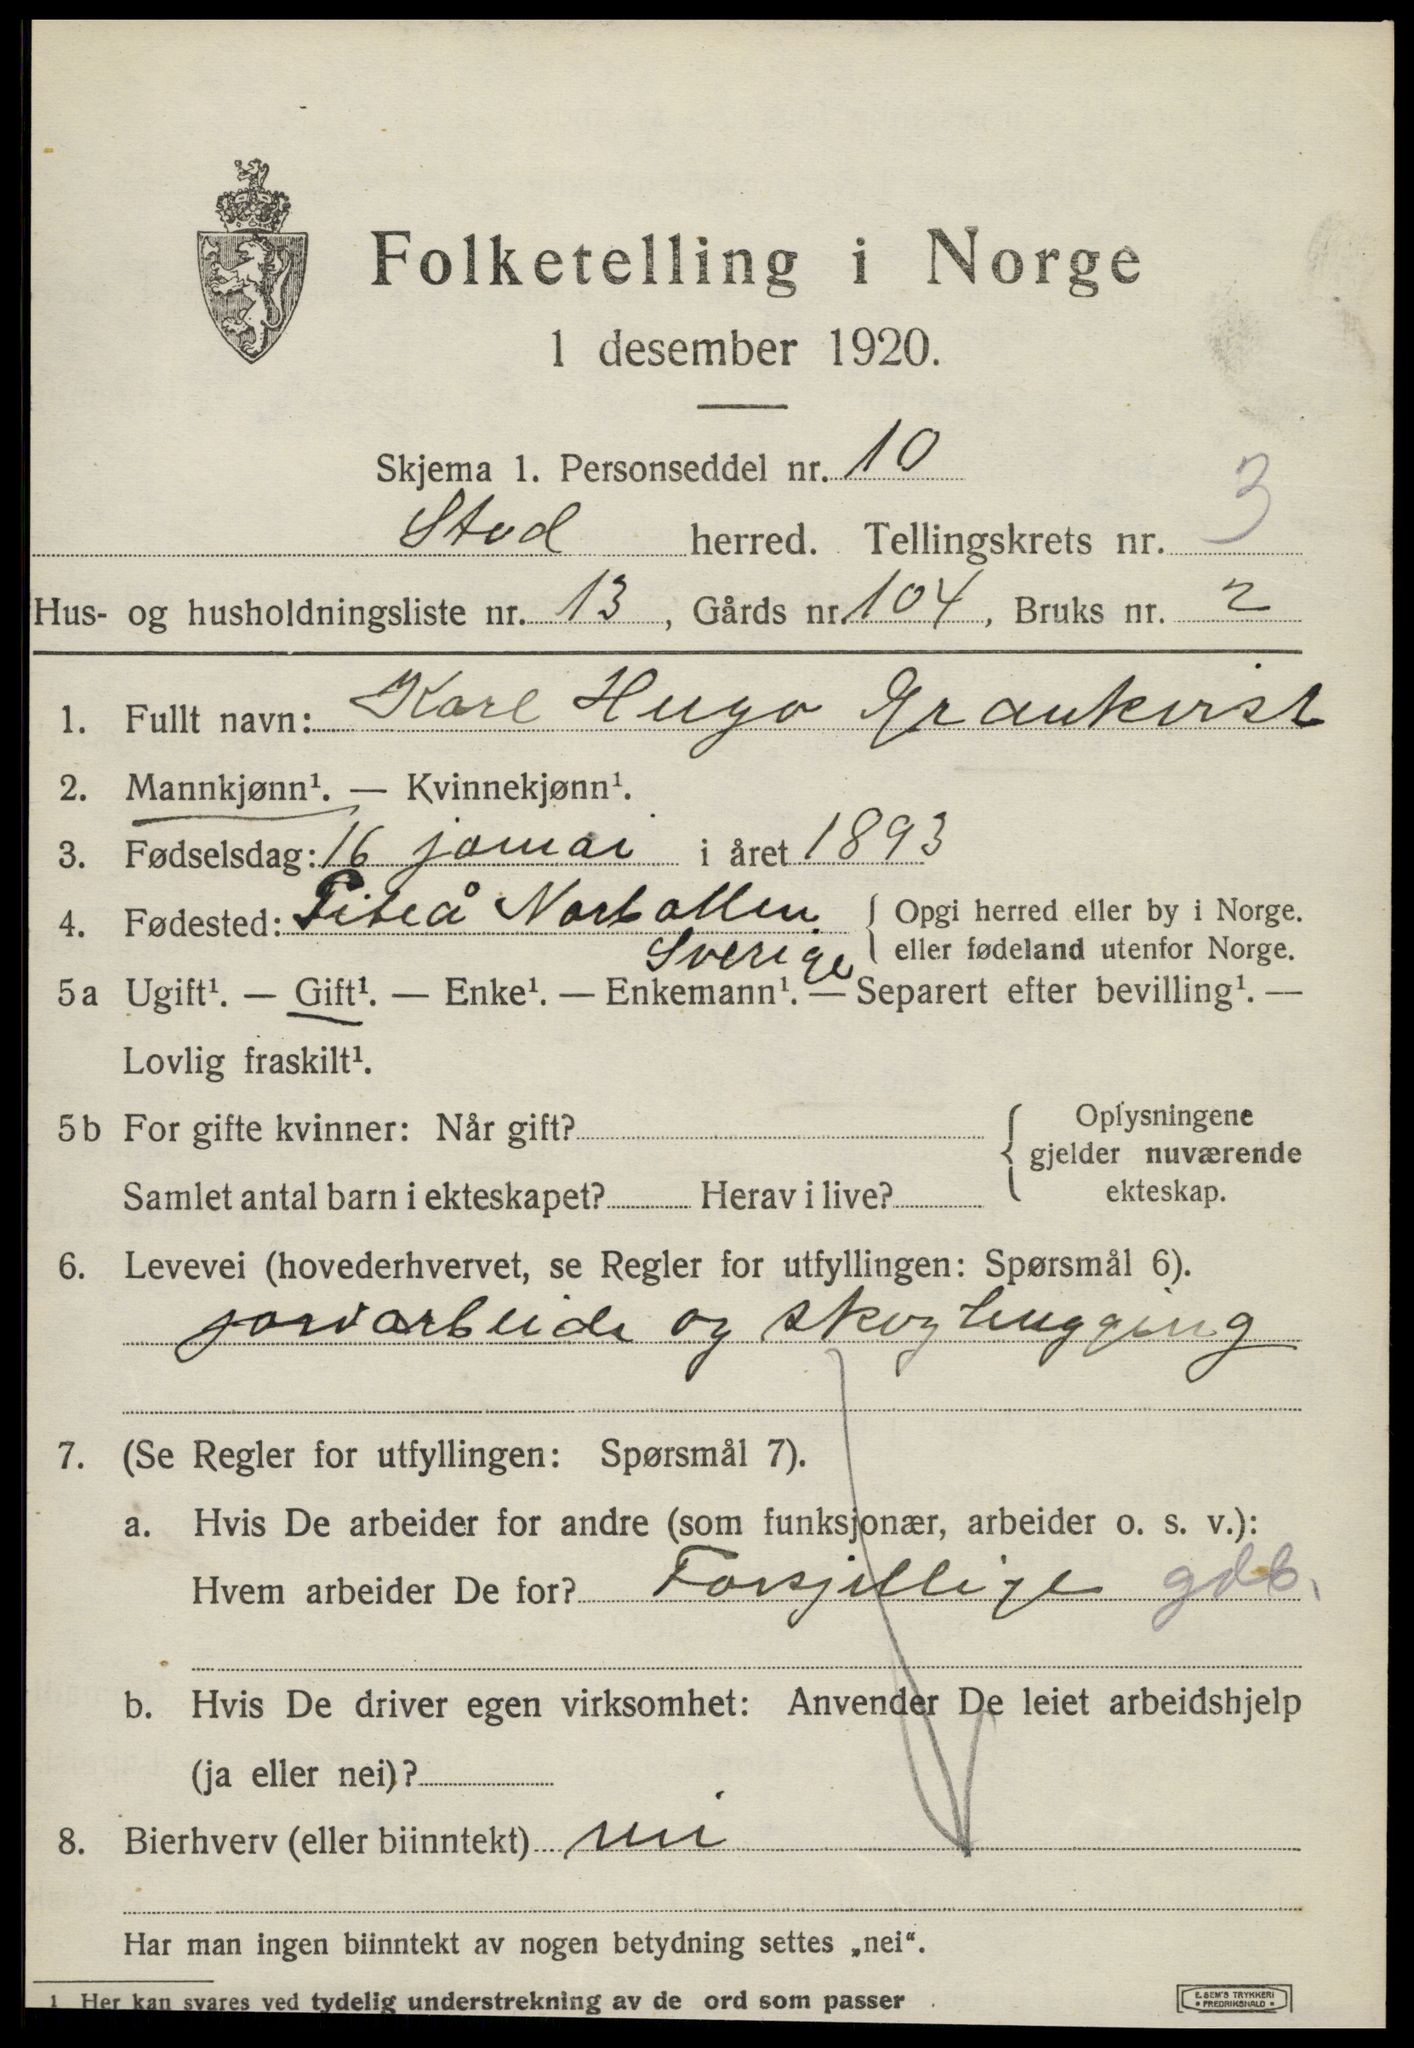 Folketelling i Norge
1 desember 1920.
Skjema 1. Personseddel nr. 10
Stod herred. Tellingskrets nr. 3
Hus- og husholdningsliste nr. 13, Gårds nr. 104, Bruks nr. 2
1. Fullt navn: Karl Hugo Grankvist
2. Mannkjønn¹. — Kvinnekjønn¹.
3. Fødselsdag: 16 januai i året 1893
4. Fødested: Piteå Norbotten { Opgi herred eller by i Norge.
Sverige eller fødeland utenfor Norge.
5a Ugift¹. — Gift¹. — Enke¹. — Enkemann¹. — Separert efter bevilling¹. —
Lovlig fraskilt¹.
5b For gifte kvinner: Når gift? { Oplysningene
gjelder nuværende
Samlet antal barn i ekteskapet? Herav i live? ekteskap.
6. Levevei (hovederhvervet, se Regler for utfyllingen: Spørsmål 6).
jordarbeide og skoghugging
7. (Se Regler for utfyllingen: Spørsmål 7).
a. Hvis De arbeider for andre (som funksjonær, arbeider o. s. v.):
Hvem arbeider De for? Forsjellige gdb.
b. Hvis De driver egen virksomhet: Anvender De leiet arbeidshjelp
(ja eller nei)?
8. Bierhverv (eller biinntekt) nei
Har man ingen biinntekt av nogen betydning settes „nei“.
1 Her kan svares ved tydelig understrekning av de ord som passer
E. SEM'S TRYKKERI
• FREDRIKSHALD •